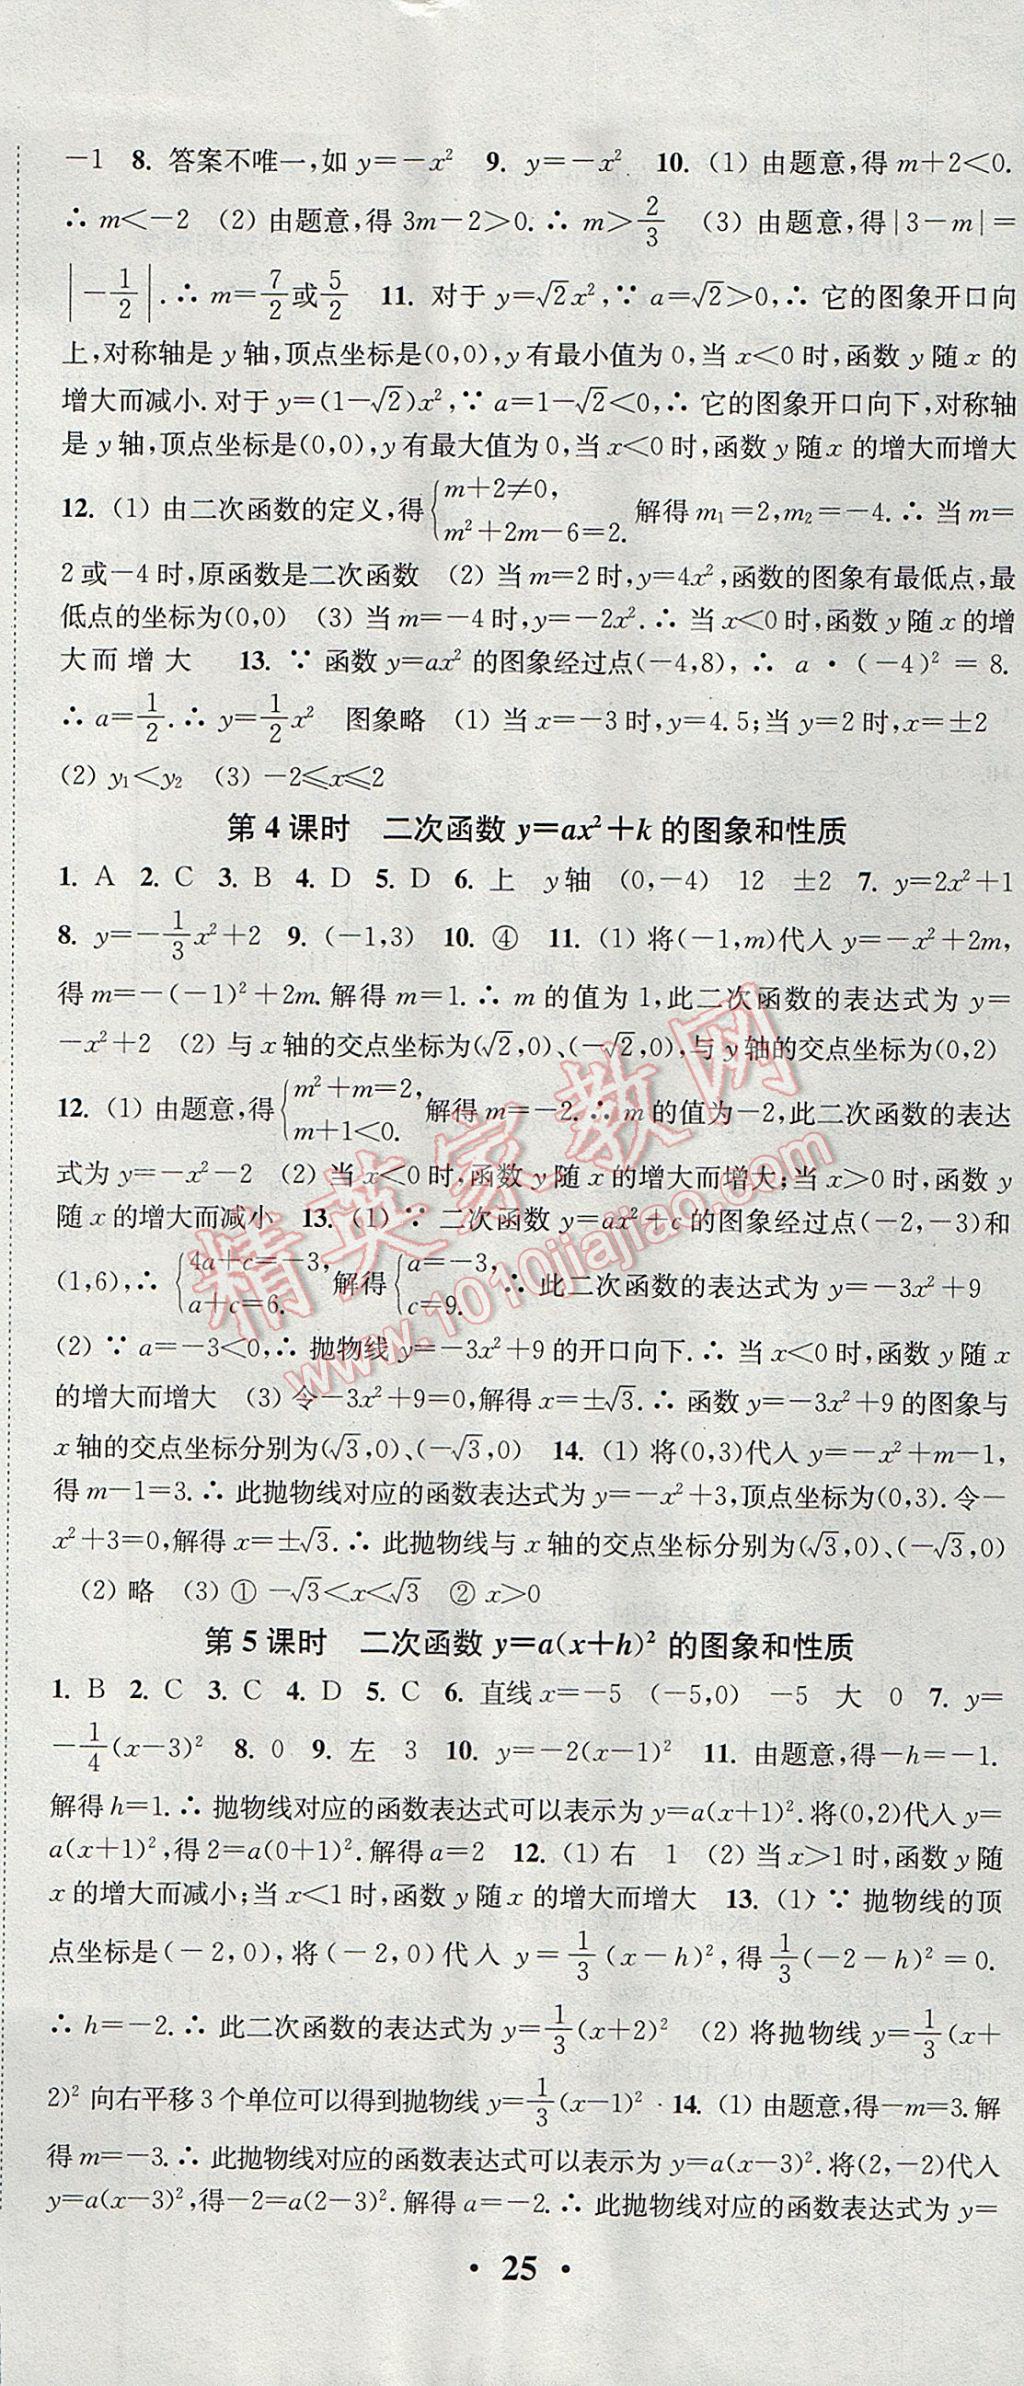 －1　8. 答案不唯一,如 y＝－x²　9. y＝－x²　10. (1) 由题意,得 m＋2＜0.
∴ m＜－2　(2) 由题意,得 3m－2＞0. ∴ m＞2/3　(3) 由题意,得|3－m|＝
|－1/2|. ∴ m＝7/2或5/2　11. 对于 y＝√2x²,∵ a＝√2＞0,∴ 它的图象开口向
上,对称轴是 y 轴,顶点坐标是(0,0),y 有最小值为 0,当 x＜0 时,函数 y 随 x 的
增大而减小. 对于 y＝(1－√2)x²,∵ a＝1－√2＜0,∴ 它的图象开口向下,对称轴
是 y 轴,顶点坐标是(0,0),y 有最大值为 0,当 x＜0 时,函数 y 随 x 的增大而增大
12. (1) 由二次函数的定义,得{m＋2≠0, m²＋2m－6＝2. 解得 m₁＝2,m₂＝－4. ∴ 当 m＝
2 或－4 时,原函数是二次函数　(2) 当 m＝2 时,y＝4x²,函数的图象有最低点,最
低点的坐标为(0,0)　(3) 当 m＝－4 时,y＝－2x². ∴ 当 x＜0 时,函数 y 随 x 的增
大而增大　13. ∵ 函数 y＝ax² 的图象经过点(－4,8),∴ a・(－4)²＝8.
∴ a＝1/2. ∴ y＝1/2x²　图象略　(1) 当 x＝－3 时,y＝4.5;当 y＝2 时,x＝±2
(2) y₁＜y₂　(3) －2≤x≤2
第 4 课时　二次函数 y＝ax²＋k 的图象和性质
1. A　2. C　3. B　4. D　5. D　6. 上　y 轴　(0,－4)　12　±2　7. y＝2x²＋1
8. y＝－1/3x²＋2　9. (－1,3)　10. ④　11. (1) 将(－1,m)代入 y＝－x²＋2m,
得 m＝－(－1)²＋2m. 解得 m＝1. ∴ m 的值为 1,此二次函数的表达式为 y＝
－x²＋2　(2) 与 x 轴的交点坐标为(√2,0)、(－√2,0),与 y 轴的交点坐标为(0,2)
12. (1) 由题意,得{m²＋m＝2, m＋1＜0. 解得 m＝－2. ∴ m 的值为－2,此二次函数的表达
式为 y＝－x²－2　(2) 当 x＜0 时,函数 y 随 x 的增大而增大;当 x＞0 时,函数 y
随 x 的增大而减小　13. (1) ∵ 二次函数 y＝ax²＋c 的图象经过点(－2,－3)和
(1,6),∴ {4a＋c＝－3, a＋c＝6. 解得{a＝－3, c＝9. ∴ 此二次函数的表达式为 y＝－3x²＋9
(2) ∵ a＝－3＜0,∴ 抛物线 y＝－3x²＋9 的开口向下. ∴ 当 x＜0 时,函数 y 随 x
的增大而增大　(3) 令－3x²＋9＝0,解得 x＝±√3. ∴ 函数 y＝－3x²＋9 的图象与
x 轴的交点坐标分别为(√3,0)、(－√3,0)　14. (1) 将(0,3)代入 y＝－x²＋m－1,
得 m－1＝3. ∴ 此抛物线对应的函数表达式为 y＝－x²＋3,顶点坐标为(0,3). 令－
x²＋3＝0,解得 x＝±√3. ∴ 此抛物线与 x 轴的交点坐标分别为(√3,0)、(－√3,0)
(2) 略　(3) ① －√3＜x＜√3　② x＞0
第 5 课时　二次函数 y＝a(x＋h)² 的图象和性质
1. B　2. C　3. C　4. D　5. C　6. 直线 x＝－5　(－5,0)　－5　大　0　7. y＝
－1/4(x－3)²　8. 0　9. 左　3　10. y＝－2(x－1)²　11. 由题意,得－h＝－1.
解得 h＝1. ∴ 抛物线对应的函数表达式可以表示为 y＝a(x＋1)². 将(0,2)代入 y＝
a(x＋1)²,得 2＝a(0＋1)². 解得 a＝2　12. (1) 右　1　(2) 当 x＞1 时,函数 y 随
x 的增大而减小;当 x＜1 时,函数 y 随 x 的增大而增大　13. (1) ∵ 抛物线的顶
点坐标是(－2,0),将(－2,0)代入 y＝1/3(x－h)²,得1/3(－2－h)²＝0.
∴ h＝－2. ∴ 此二次函数的表达式为 y＝1/3(x＋2)²　(2) 将抛物线 y＝1/3(x＋
2)² 向右平移 3 个单位可以得到抛物线 y＝1/3(x－1)²　14. (1) 由题意,得－m＝3. 解
得 m＝－3. ∴ 此抛物线对应的函数表达式可以表示为 y＝a(x－3)². 将(2,－2)代入
y＝a(x－3)²,得－2＝a(2－3)². 解得 a＝－2. ∴ 此抛物线对应的函数表达式为 y＝
・25・
精英家教网
www.1010jiajiao.com